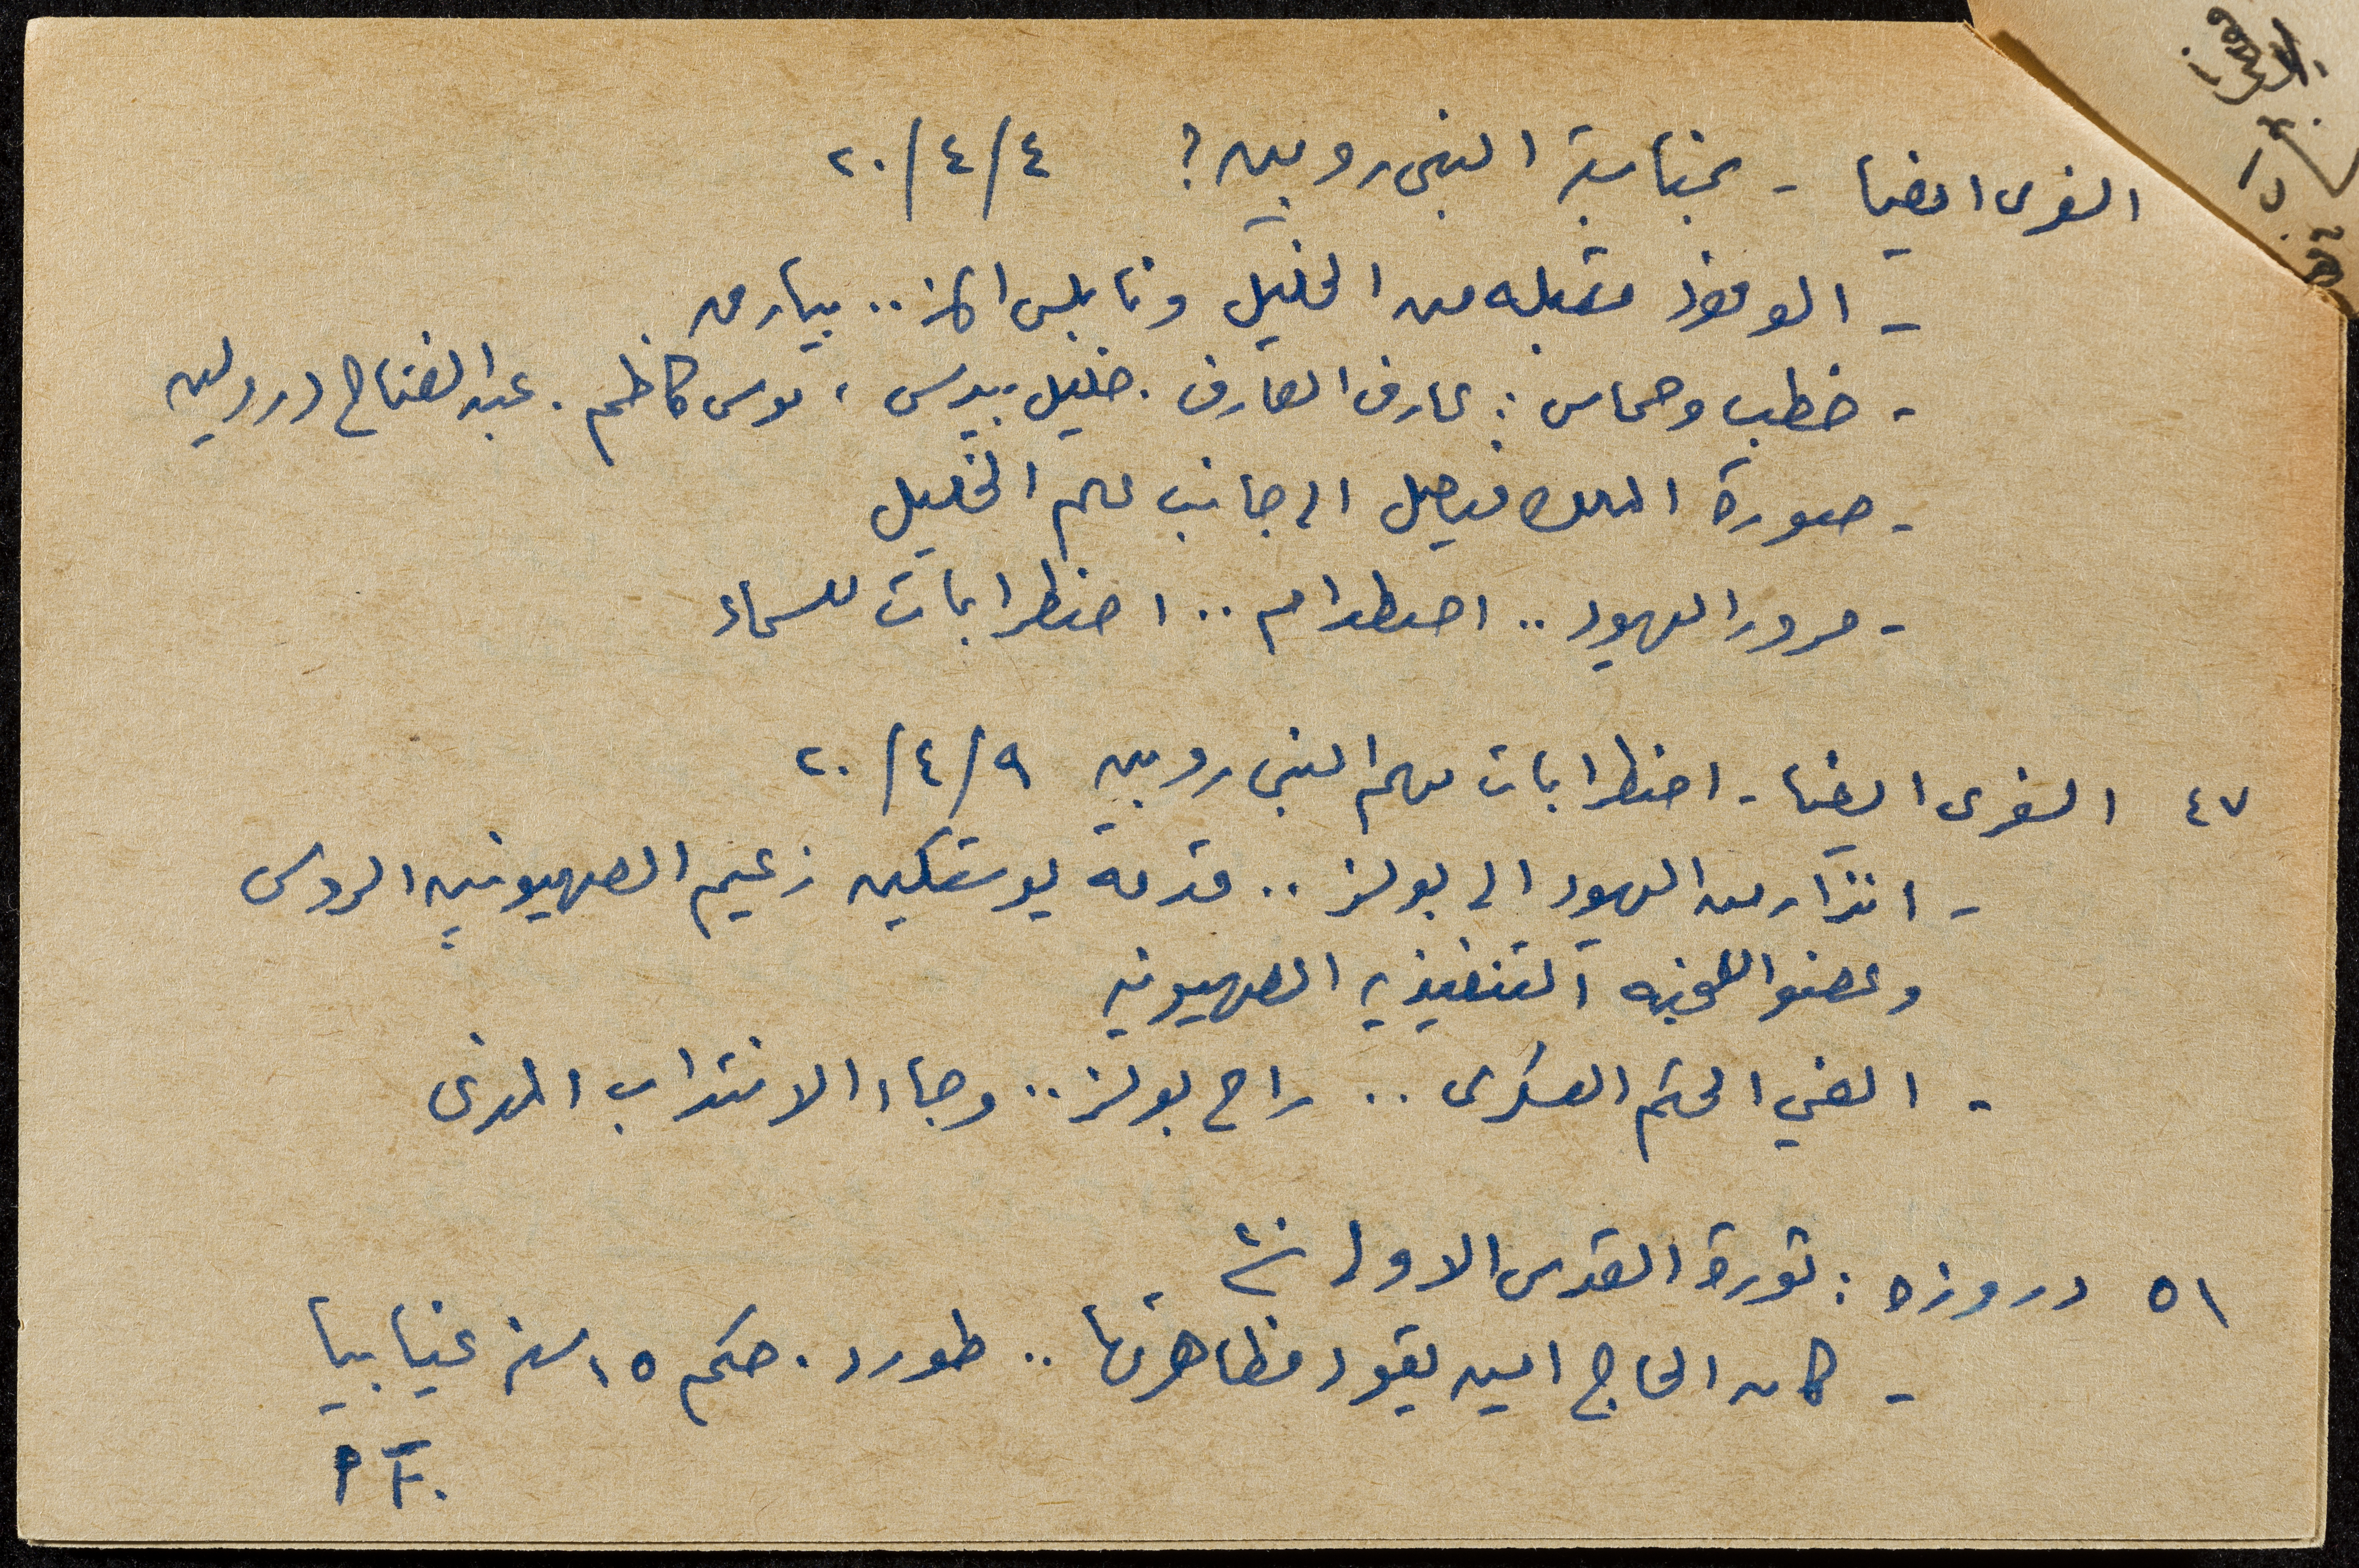 الغرى ايضا - بمناسبة النبى روبين؟ ٢٠/٤/٤
- الوفود مقبله من الخليل ونابلس الخ.. بيارق
- خطب وحماس: عارف العارف. خليل بيدس، موسى كاظم. عبد الفتاح درويش
- صورة الملك فيصل الى جانب علم الخليل
- مرور اليهود .. اصطدام .. اضطرابات للسماء
٤٧ الغرى ايضا - اضطرابات موسم النبى روبين ٢٠/٤/٩
- انذار من اليهود الى بولز .. قدمه يوستكين زعيم الصهيونيين الروس
وعضو اللجنه التنفيذيه الصهيونيه
- الغي الحكم العسكرى .. راح بولز .. وجاء الانتداب المدنى
٥١ دروزه: ثورة القدس الاولى
- كان الحاج امين يقود مظاهرتها .. طورد. حكم ١٥ سنه غيابيا
PF.